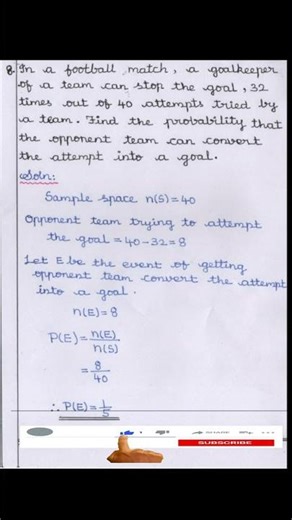 8. In a football match, a goalkeeper
of a team can stop the goal, 32
times out of 40 attempts tried by
a team. Find the probability that
the opponent team can convert
the attempt into a goal.
Soln:
Sample space n(S) = 40
Opponent team trying to attempt
the goal = 40 - 32 = 8
Let E be the event of getting
opponent team convert the attempt
into a goal.
n(E) = 8
P(E) = n(E)/n(S)
= 8/40
∴ P(E) = 1/5
SHARE
SUBSCRIBE